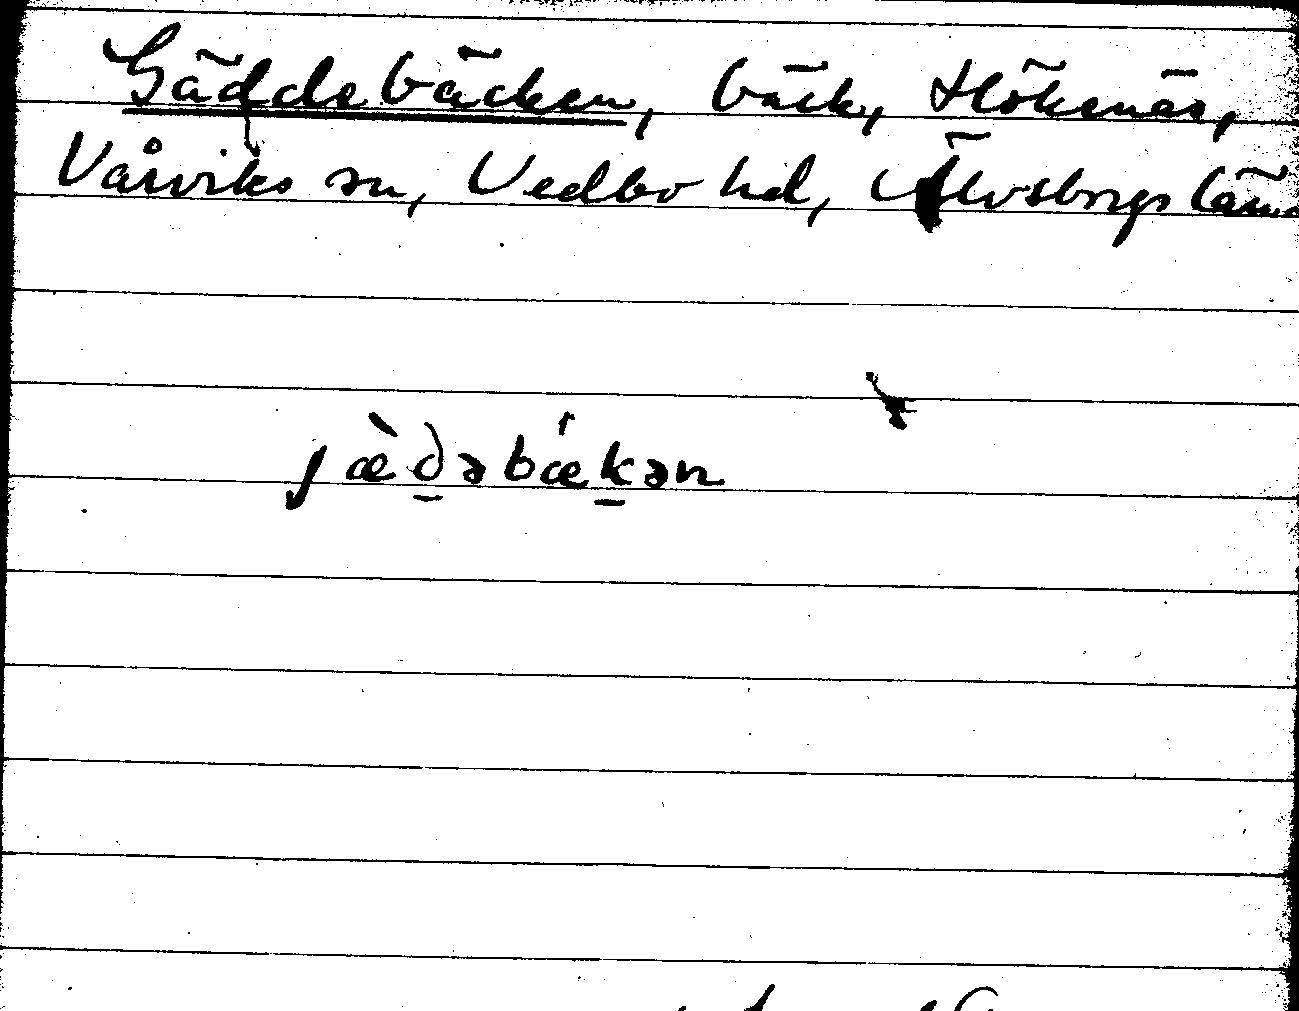 Gäddebäcken, bäck, Höksnäs,
Vårviks sn, Vedbo hd, Älvsborgs län
jæ̀d̲əbǽk̲ən